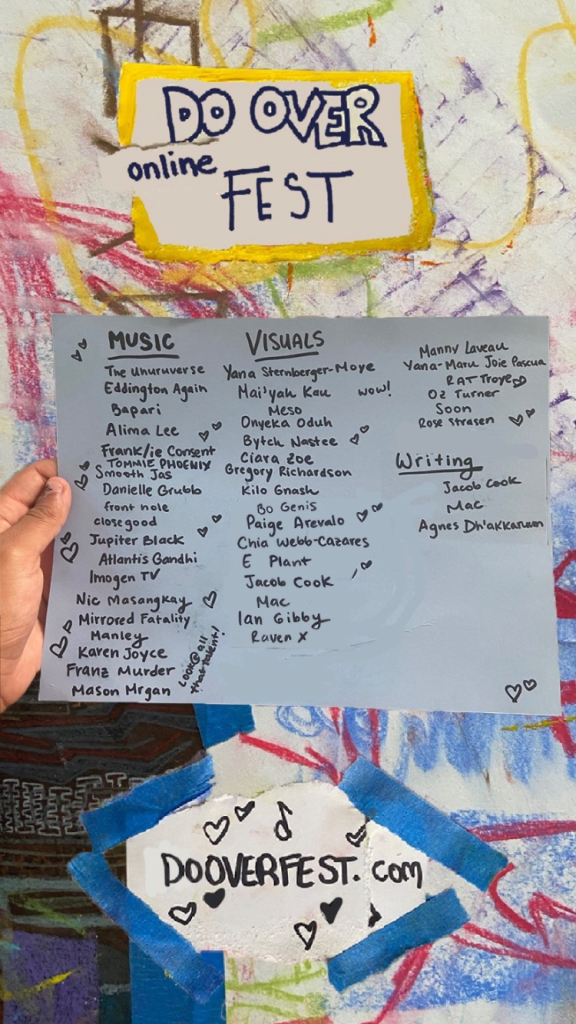 DO OVER
online
FEST
MUSIC
The Unuruverse
Eddington Again
Bapari
Alima Lee
Frank/ie Consent
TOMMIE PHOENIX
Smooth Jas
Danielle Grubb
front hole
closegood
Jupiter Black
Atlantis Gandhi
Imogen TV
Nic Masangkay
Mirrored Fatality
Manley
Karen Joyce
Franz Murder
Mason Mrgan
Look@all
that talent!
VISUALS
Yana Sternberger-Moye
Mai'yah Kau wow!
Meso
Onyeka Oduh
Bytch Nastee
Ciara Zoe
Gregory Richardson
Kilo Gnash
Bo Genis
Paige Arevalo
Chia Webb-Cazares
E Plant
Jacob Cook
Mac
Ian Gibby
Raven X
Manny Laveau
Yana-Maru Joie Pascua
RAT Troye
Oz Turner
Soon
Rose Strasen
Writing
Jacob Cook
Mac
Agnes Dh'akkaram
DOOVERFEST.com